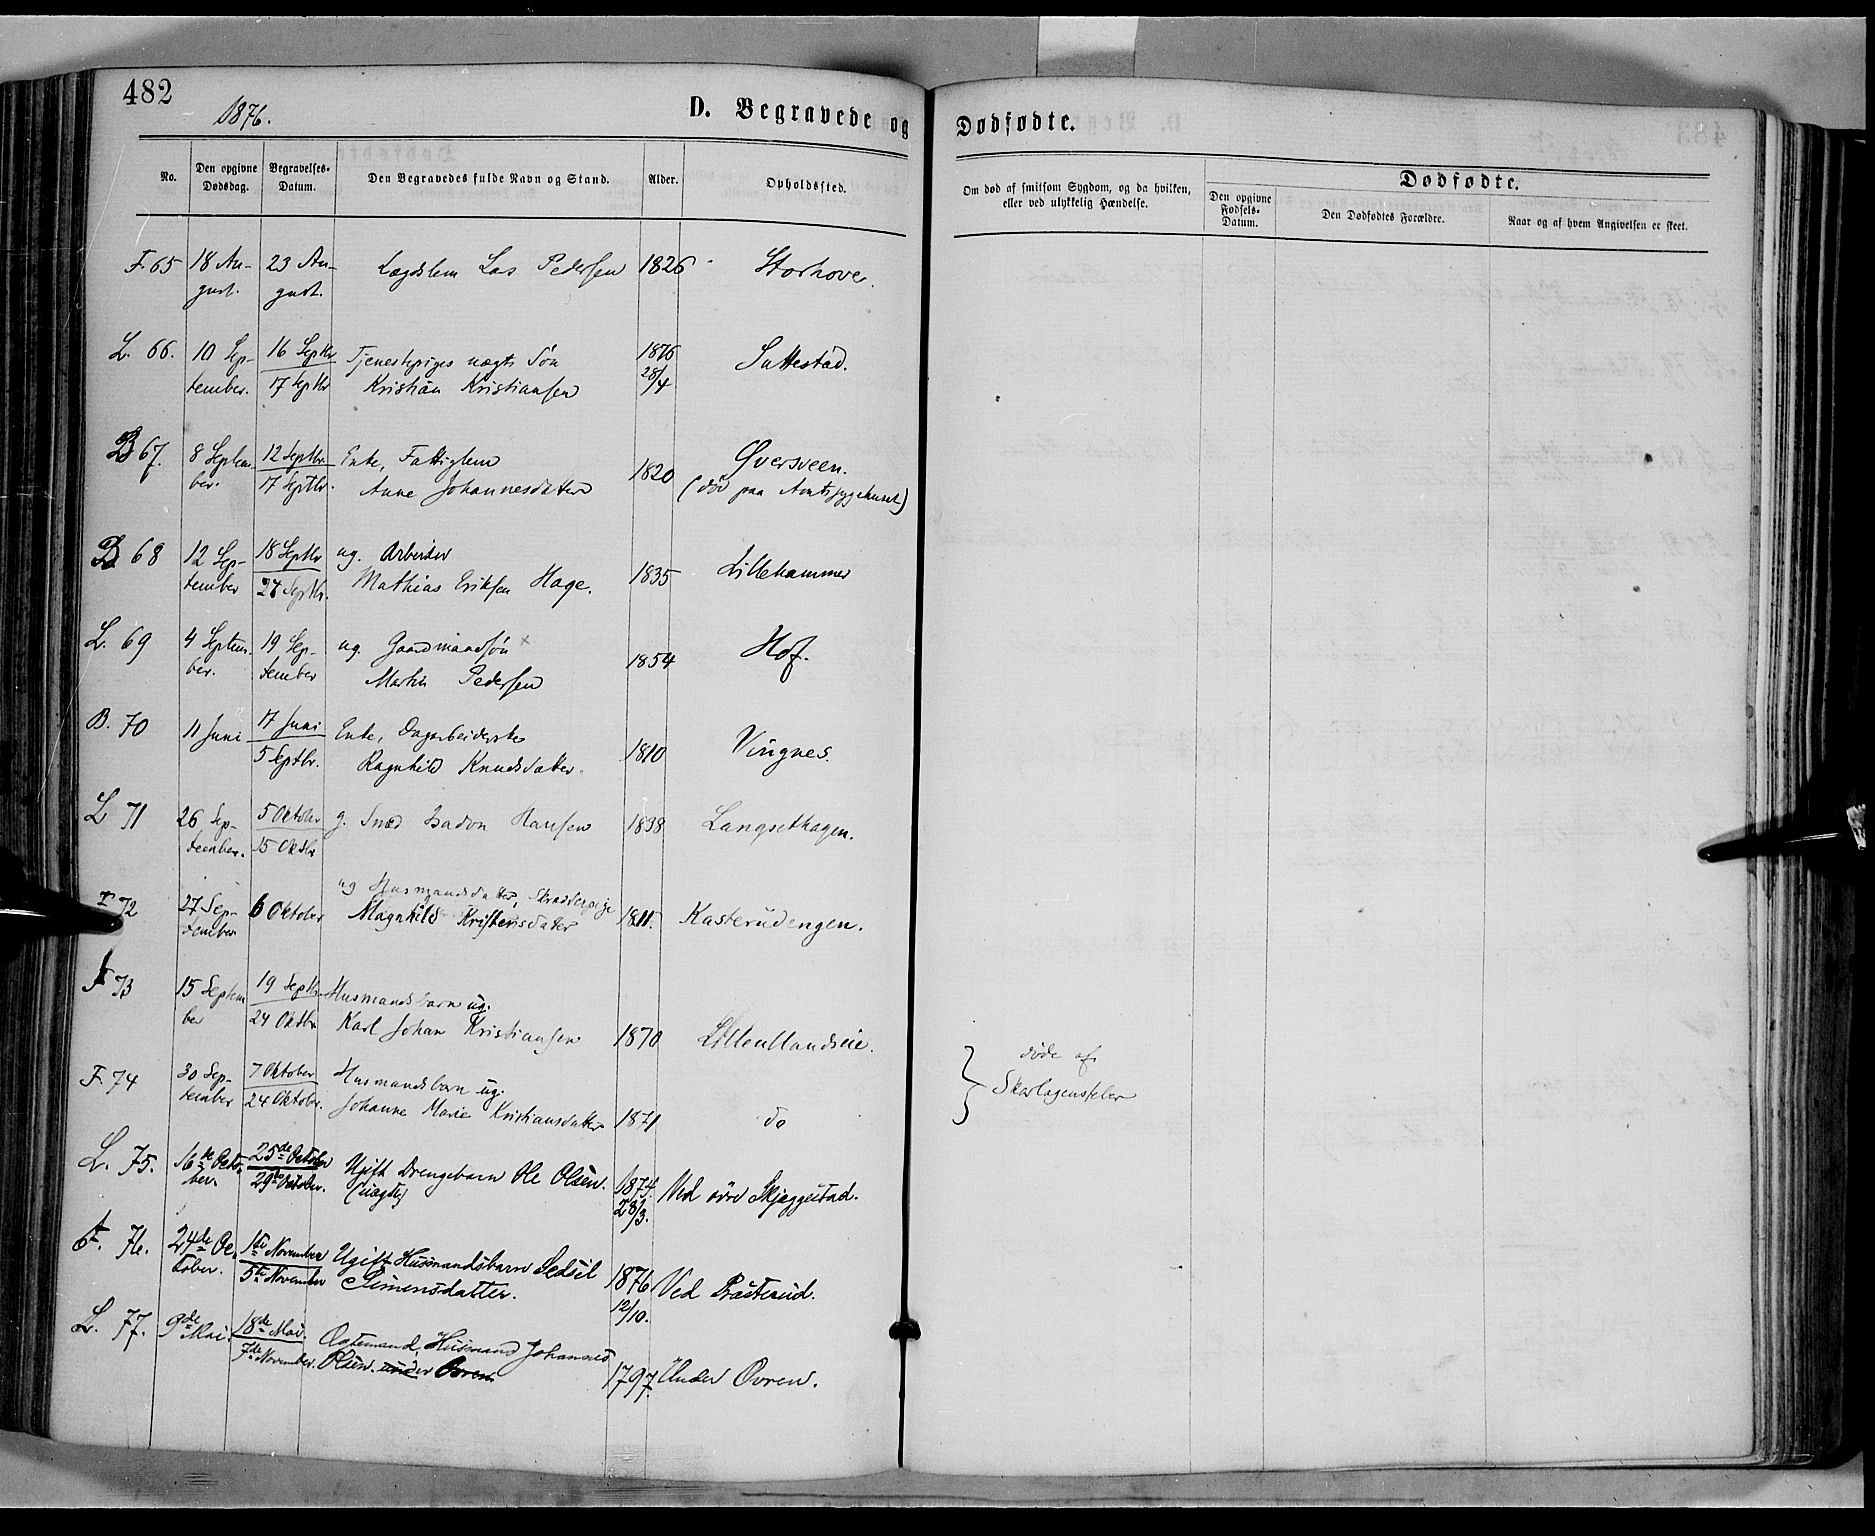 482
1876.
D. Begravede og Dødfødte.
No.
Den opgivne Dødsdag.
Begravelses-Datum.
Den Begravedes fulde Navn og Stand.
Alder.
Opholdssted.
Om død af smitsom Sygdom, og da hvilken, eller ved ulykkelig Hændelse.
Dødfødte.
Den opgivne Fødsels-Datum.
Den Dødfødtes Forældre.
Naar og af hvem Angivelsen er skeet.
F. 65 18 Au- 23 Au- Lægdslem Lars Pedersen 1826 Storhove.
gust. gust.
L. 66. 10 Sep- 16 Septbr Tjenestepiges uægte Søn 1876 Suttestad.
tember. 17 Septbr Kristian Kristiansen 28/4
B 67. 8 Septem- 12 Septbr. Enke, Fattiglem 1820 Øversveen.
ber. 17 Septbr. Anne Johannesdatter (død paa Amtssygehuset)
B 68 12 Sep- 18 Septbr ug. Arbeider 1835 Lillehammer
tember 24 Septbr. Mathias Eriksen Hage.
L. 69 4 Septem- 19 Sep- ug. Gaardmandssøn 1854 Hof.
ber. tember Martin Pedersen
B. 70 11 Juni 17 Juni Enke, Dagarbeiderske 1810 Vingnes.
5 Septbr. Ragnhild Knudsdatter.
L 71 26 Sep- 5 Oktober g. Smed Hansen 1838 Langsethagen.
tember. 15 Oktbr
F 72 27 Sep- 6 Oktober ug Husmandsdatter, 1811. Kasterudengen.
tember Magnhild Kristensdatter
F 73 15 Septem 19 Septbr. Husmandsbarn ug.
ber 24 Oktbr. Karl Johan Kristiansen 1870 Lillenllandseie.
F. 74 30 Sep- 7 Oktober Husmandsbarn ug. } døde af
tember 24 Oktober. Johanne Marie Kristiansdatter 1871 do Skarlagensfeber
L. 75. 16de Octo- 25de October Ugift Drengebarn Ole Olsen. 1874. Ved øvre Skjeggestad.
ber. 29de October. (uægte) 28/3.
F. 76. 24de Oc- 1ste November Ugift Husmandsbarn Sedsel 1876 Ved Prästerud.
tober. 5te November Simensdatter. 12/10.
L. 77. 9de Mai. 18de Mai. Egtemand, Husmand Johannes 1797. Under Øvren.
7de November. Olsen. under Øvren.